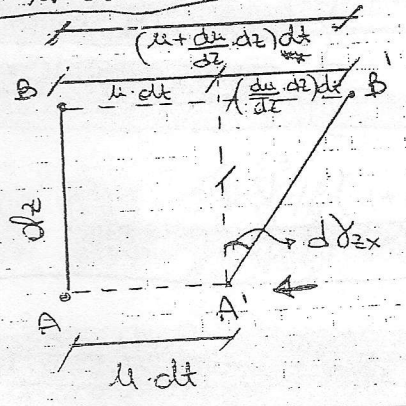 (u + du/dz · dz) dt
B u · dt (du/dz · dz) dt B'
dz
dγzx
D A'
u · dt